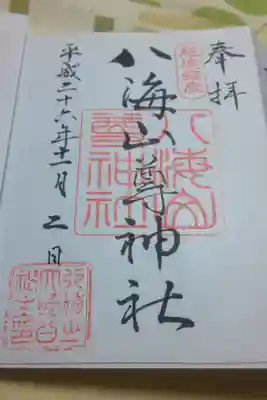 奉拝
八海山尊神社
平成二十六年十一月二日
八海山
尊神社